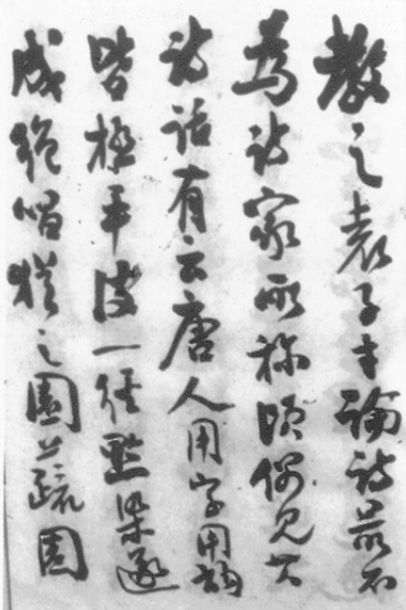 教之袁子才論詩最不
為詩家所稱頃偶見其
詩話有云唐人用字用
皆極平一經點染遂
成絶唱猶之園蔬園